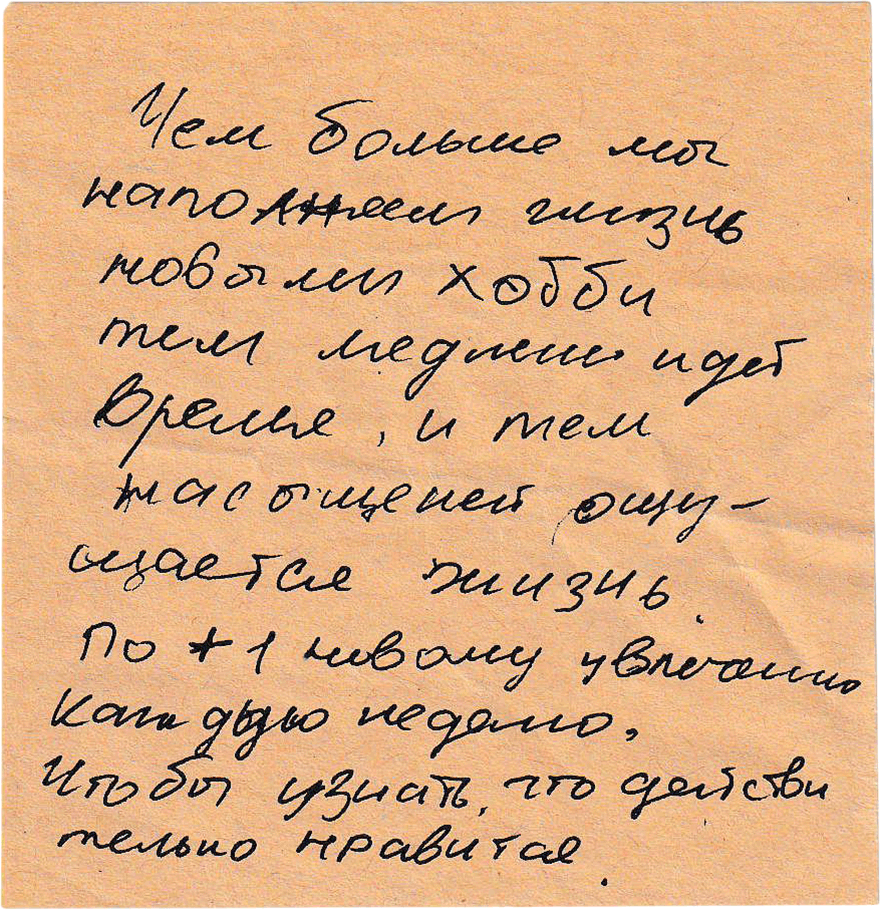 Чем больше мы
наполняем жизнь
новыми хобби
тем медленно идет
время, и тем
насыщеней ощу-
щается жизнь.
По +1 новому увлечению
каждую неделю,
чтобы узнать, что действи
тельно нравится.